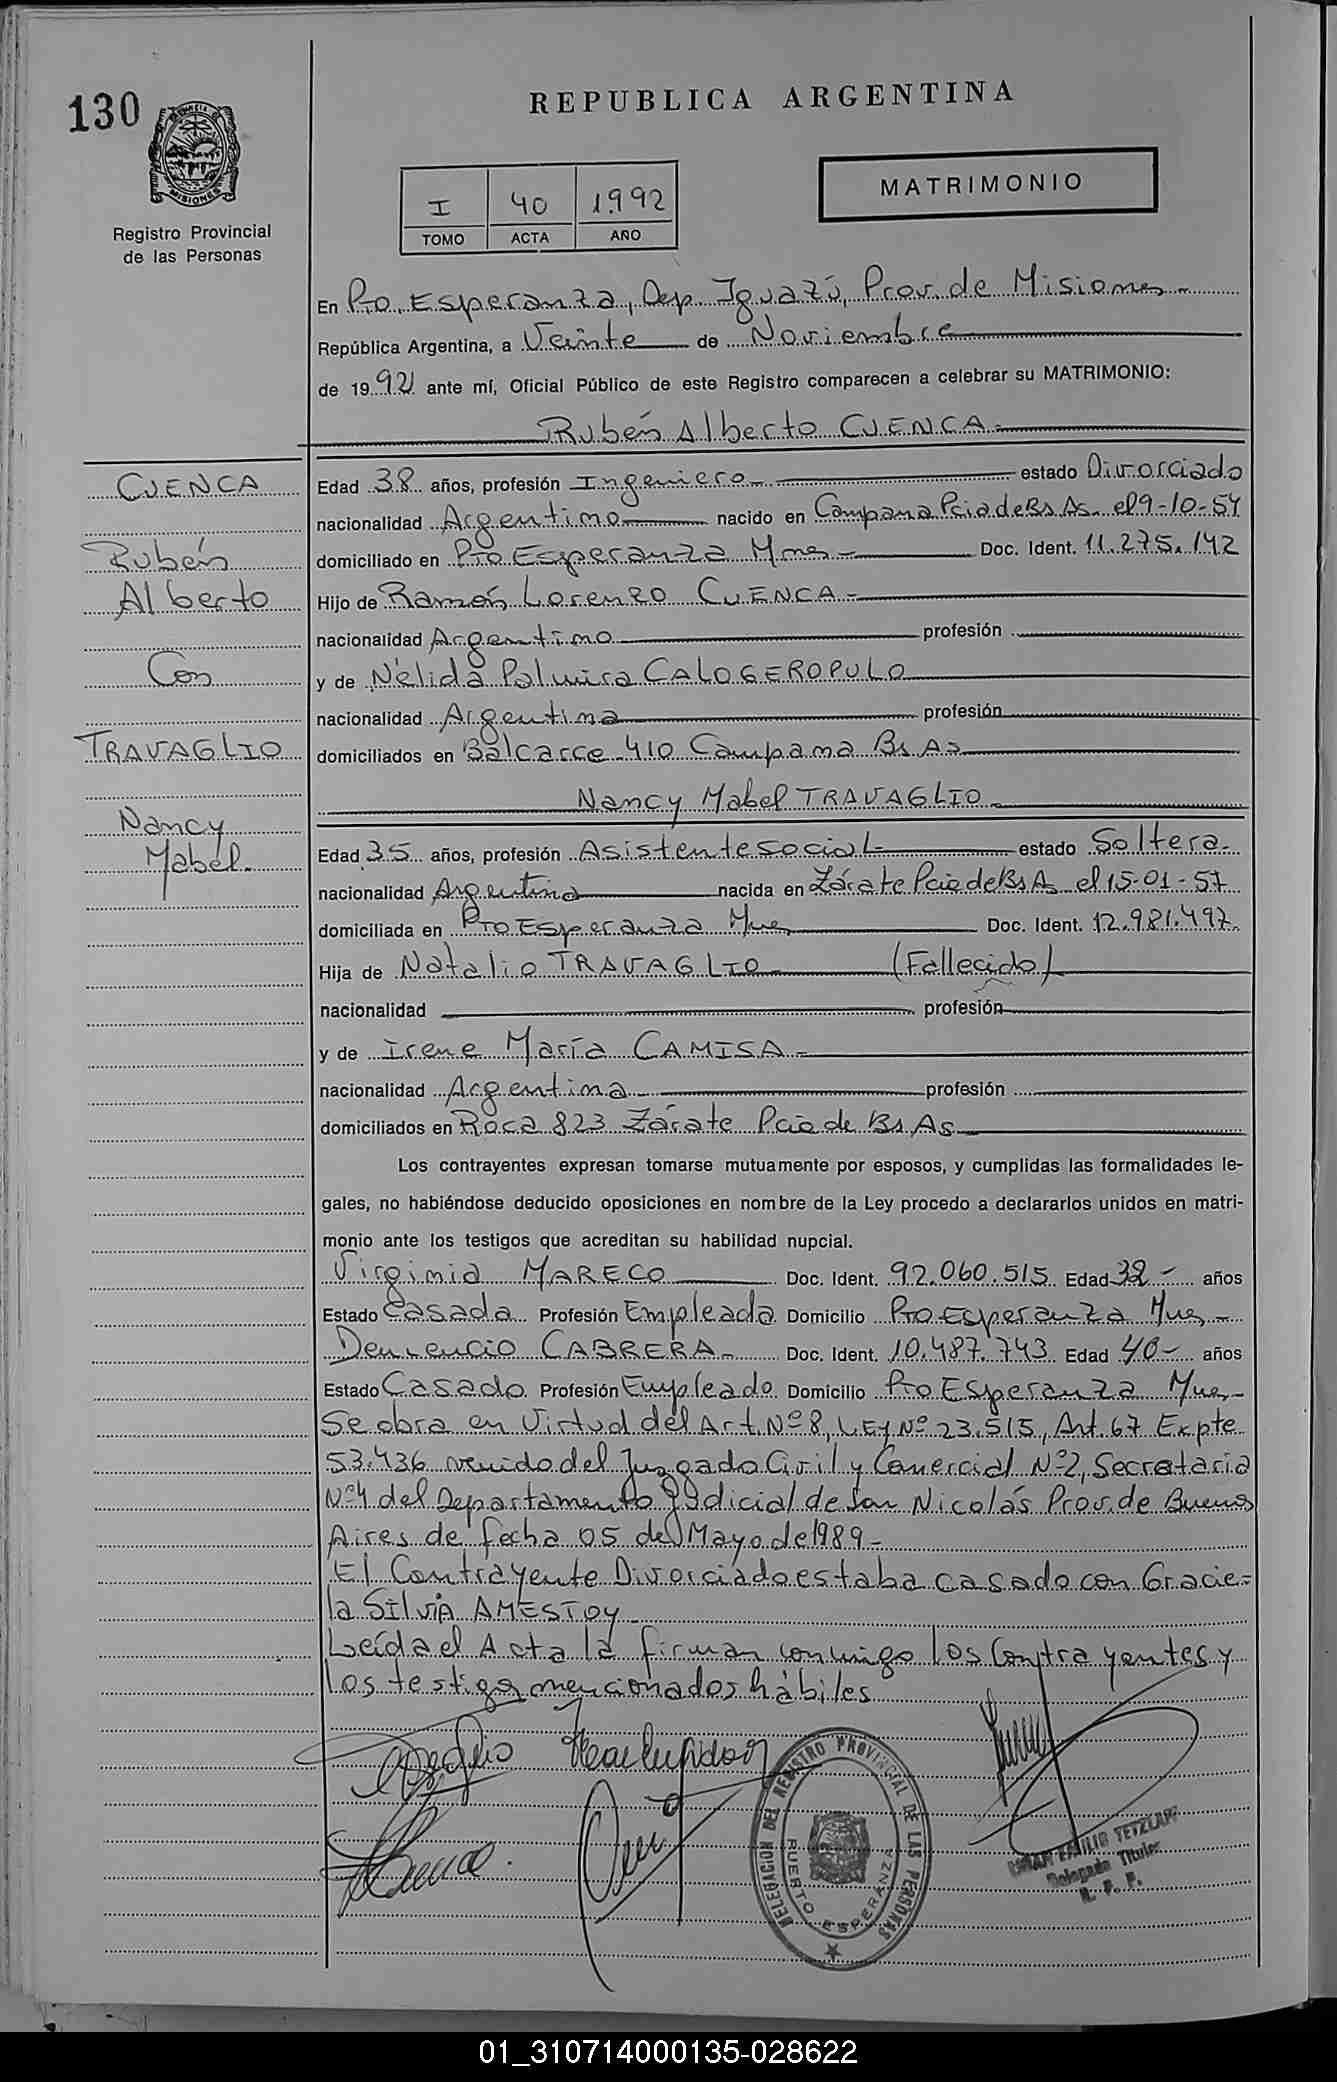 130
REPUBLICA ARGENTINA
MISIONES
Registro Provincial
de las Personas
I 40 1.992
TOMO ACTA AÑO
MATRIMONIO
En Pto. Esperanza, Dep. Iguazú, Prov. de Misiones
República Argentina, a Veinte de Noviembre
de 1992 ante mí, Oficial Público de este Registro comparecen a celebrar su MATRIMONIO:
Rubén Alberto CUENCA
CUENCA
Rubén
Alberto
Con
TRAVAGLIO
Nancy
Mabel.
Edad 38 años, profesión Ingeniero estado Divorciado
nacionalidad Argentino nacido en Campana Pcia de Bs As. el 9-10-54
domiciliado en Pto Esperanza Mnes Doc. Ident. 11.275.142
Hijo de Ramón Lorenzo CUENCA
nacionalidad Argentino profesión
y de Nélida Palmira CALOGEROPULO
nacionalidad Argentina profesión
domiciliados en Balcarce 410 Campana Bs As
Nancy Mabel TRAVAGLIO
Edad 35 años, profesión Asistente social estado Soltera
nacionalidad Argentina nacida en Zárate Pcia de Bs As el 15-01-57
domiciliada en Pto Esperanza Mnes Doc. Ident. 12.981.497
Hija de Natalio TRAVAGLIO (Fallecido)
nacionalidad profesión
y de Irene María CAMISA
nacionalidad Argentina profesión
domiciliados en Roca 823 Zárate Pcia de Bs As
Los contrayentes expresan tomarse mutuamente por esposos, y cumplidas las formalidades le-
gales, no habiéndose deducido oposiciones en nombre de la Ley procedo a declararlos unidos en matri-
monio ante los testigos que acreditan su habilidad nupcial.
Virginia MARECO Doc. Ident. 92.060.515 Edad 32 años
Estado Casada Profesión Empleada Domicilio Pto Esperanza Mnes
CABRERA Doc. Ident. 10.487.743 Edad 40 años
Estado Casado Profesión Empleado Domicilio Pto Esperanza Mnes
Se obra en Virtud del Art. Nº 8, LEY Nº 23.515, Art. 67 Expte
53.436 venido del Juzgado Civil y Comercial Nº2, Secretaria
Nº4 del Departamento Judicial de San Nicolás Prov. de Buenos
Aires de fecha 05 de Mayo de 1989
El Contrayente Divorciado estaba casado con Gracie-
la Silvia AMESTOY
Leída el Acta la firman conmigo los Contrayentes y
los testigos mencionados hábiles
DELEGACION DEL REGISTRO PROVINCIAL DE LAS PERSONAS
PUERTO ESPERANZA
EMILIO
Delegado Titular
R. P. P.
01_310714000135-028622